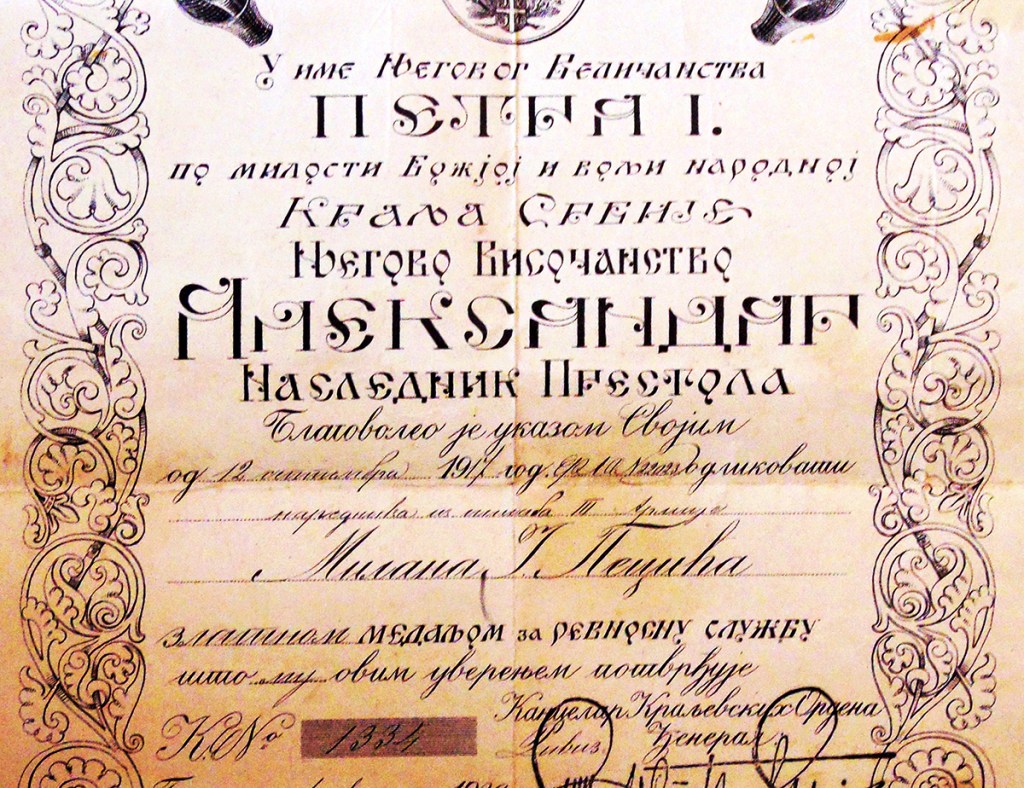 У име Његовог Величанства
ПЕТРА I.
по милости Божјој и вољи народној
Краља Србије
Његово Височанство
Александар
Наследник Престола
Благоволео је указом Својим
од 12 септембра 1917 год. одликовати
наредника из штаба III Армије
Милана Пецића
златном медаљом за ревносну службу
што му овим уверењем потврђује
Канцелар Краљевских Ордена
К.№ 1334
Дивиз. Ђенерал